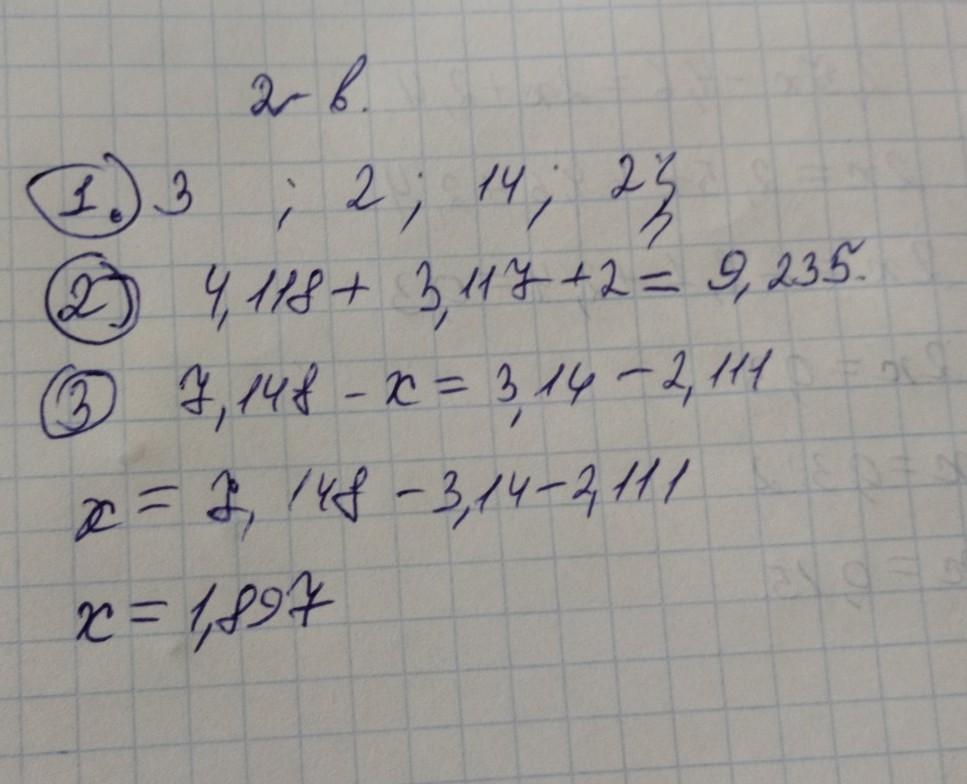 2-в.
1. 3 ; 2 ; 14 ; 2;
2) 4,118 + 3,117 + 2 = 9,235.
3 7,148 - x = 3,14 - 2,111
x = 7,148 - 3,14 - 2,111
x = 1,897